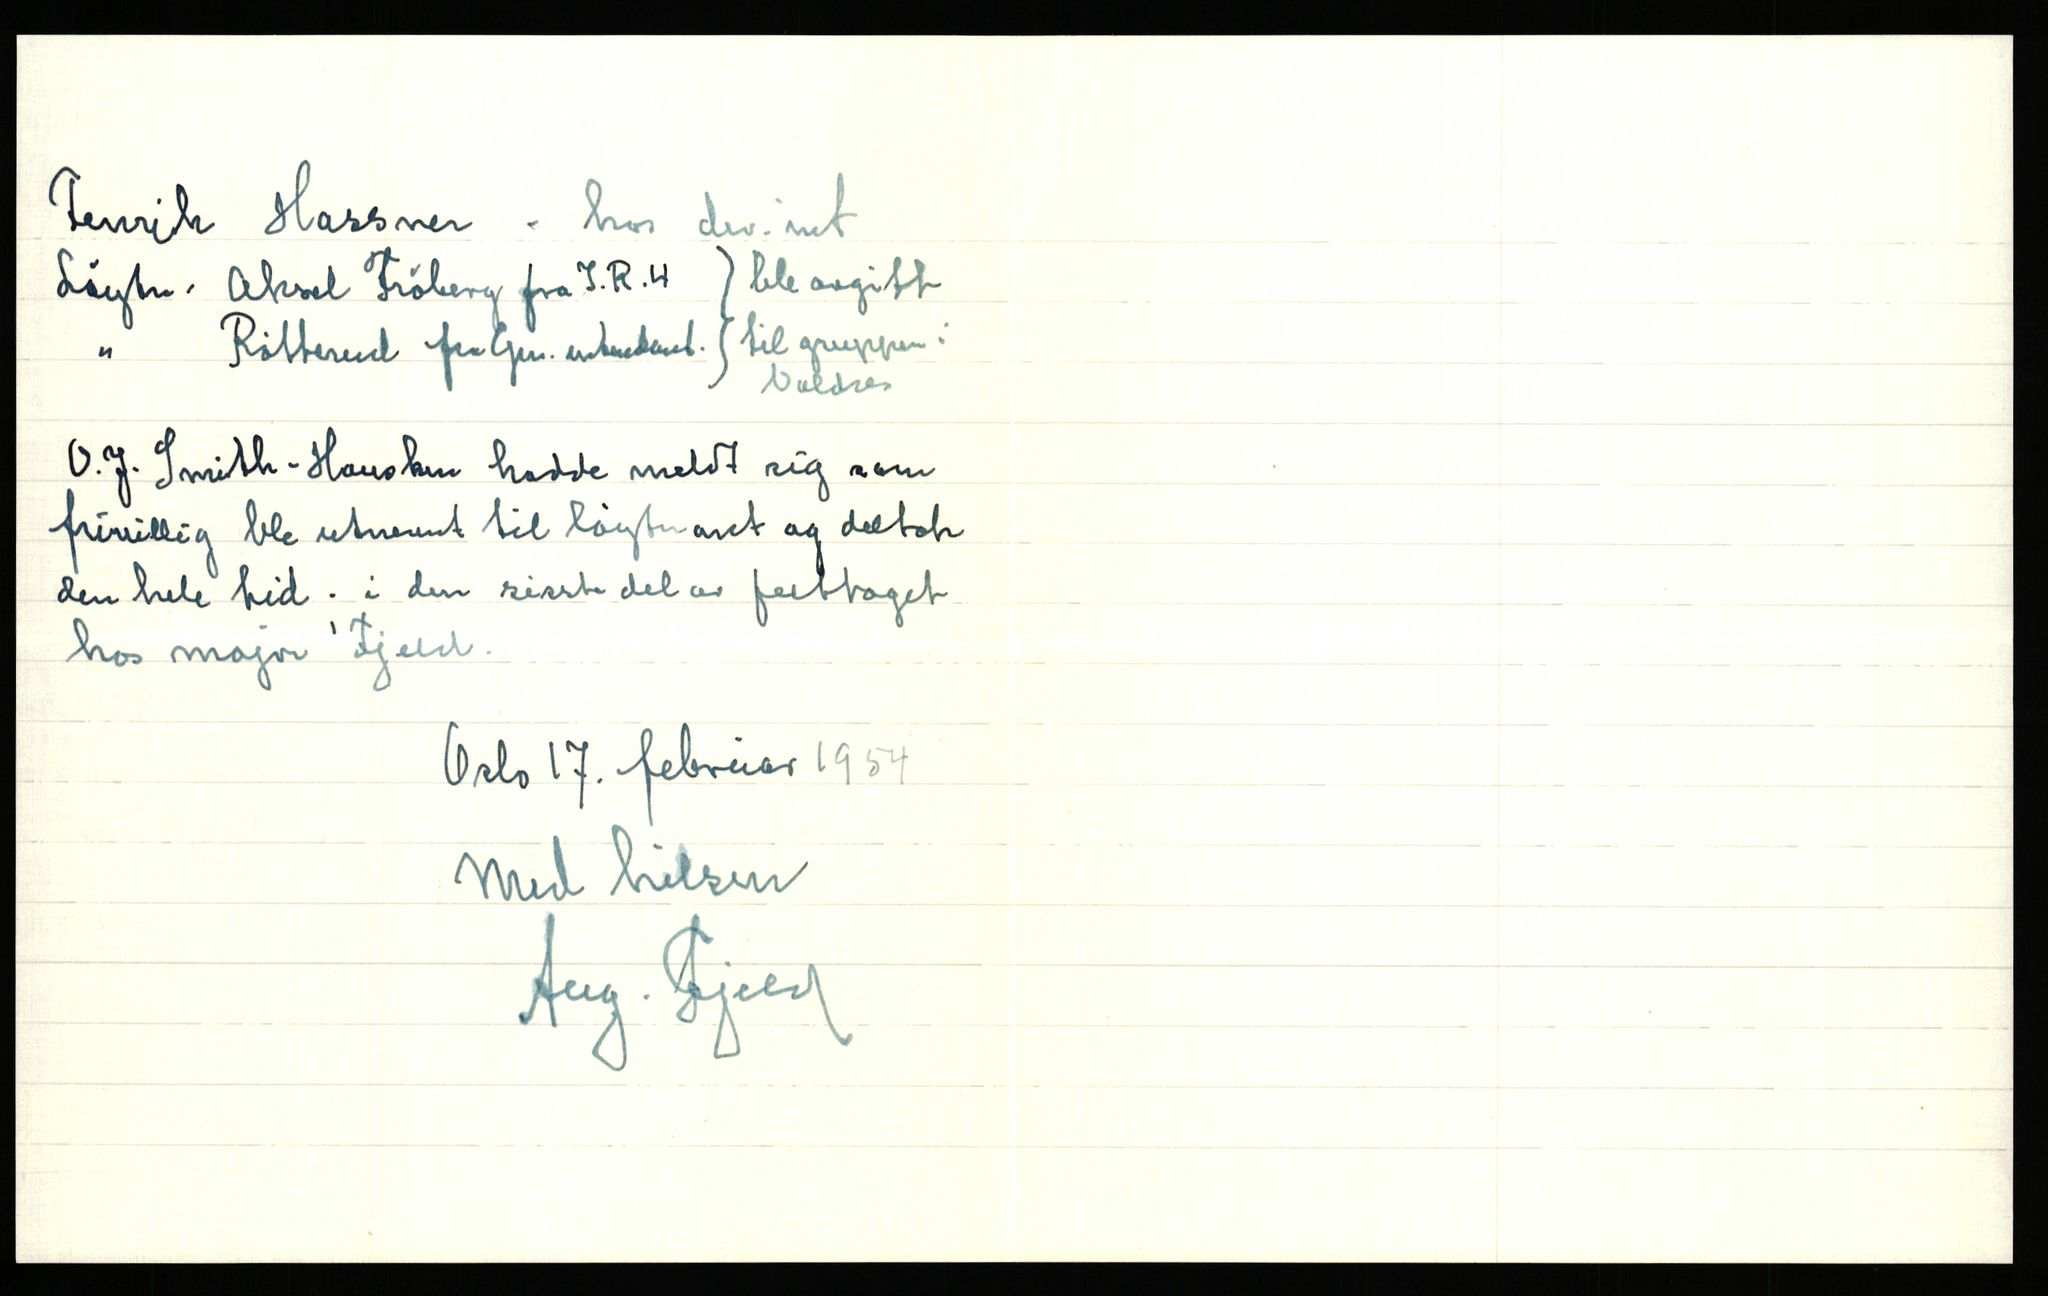 Fenrik Hassner - hos div. int
Løytn. Aksel Frøberg fra I.R.4 } ble avgitt
" Røtterud fra Gen. intendant. } til gruppen i
Valdres
O.J. Smith-Housken hadde meldt sig som
frivillig ble utnevnt til løytnant og deltok
den hele tid. i den sisste del av felttoget
hos major Fjeld.
Oslo 17. februar 1954
Med hilsen
Aug. Fjeld